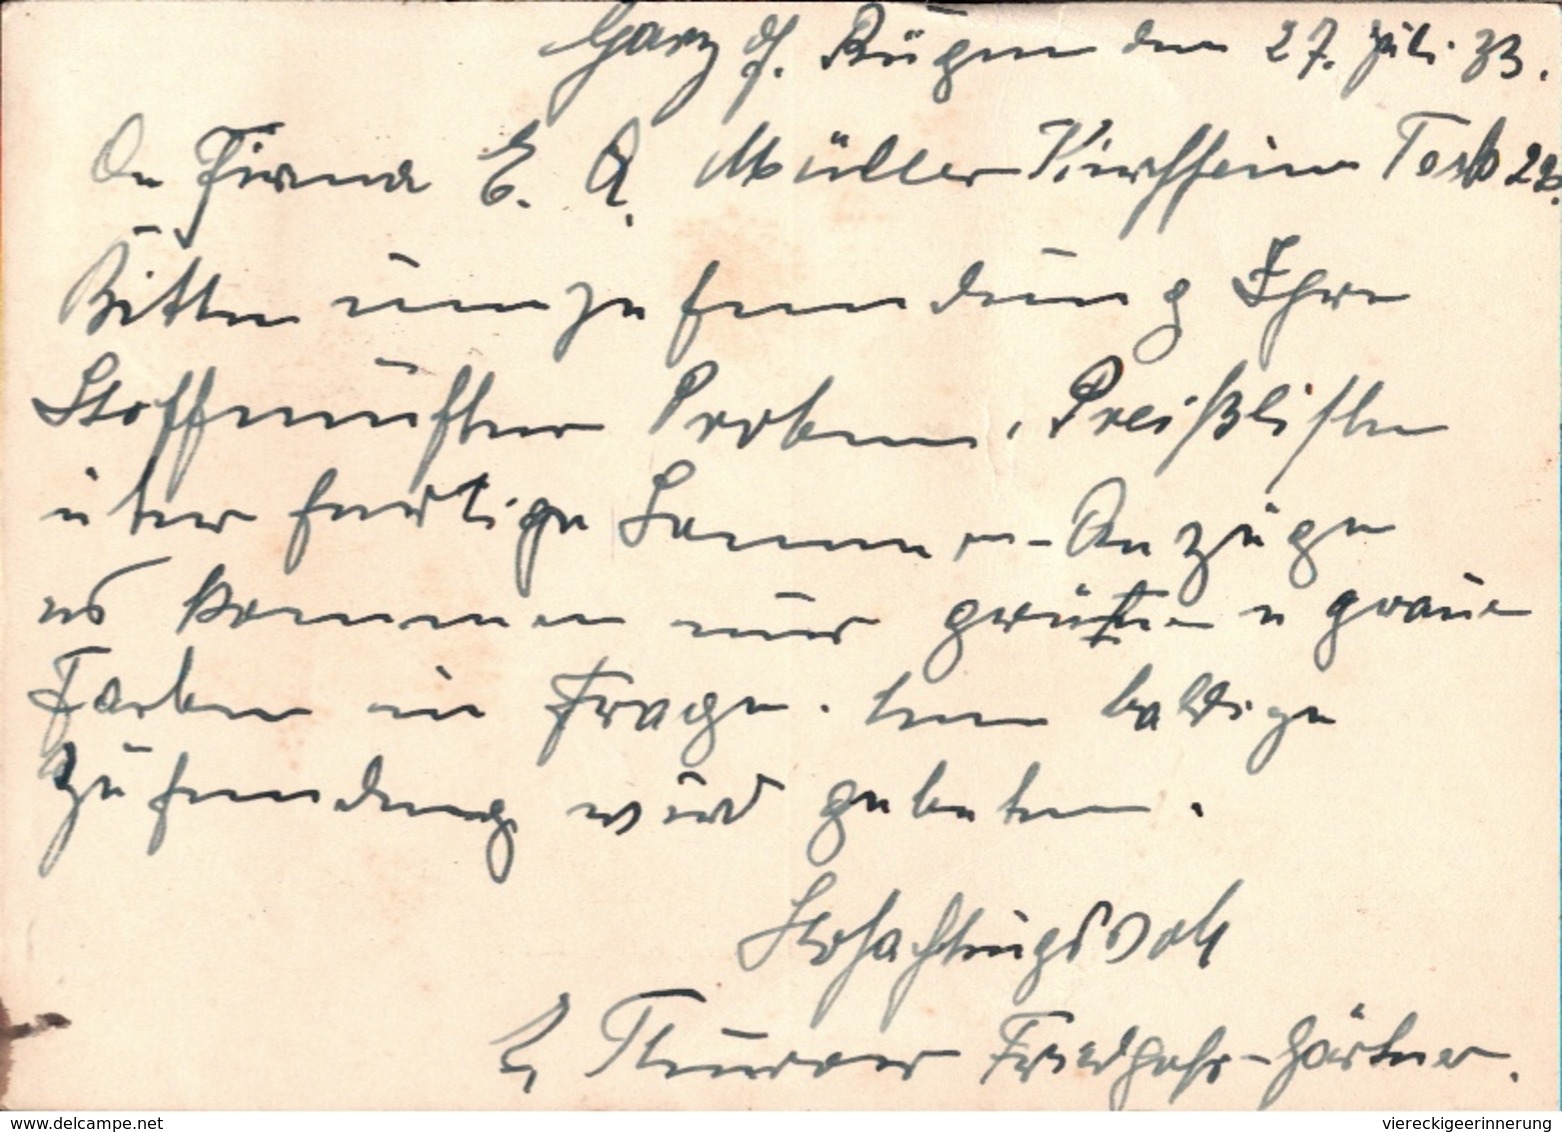 Garz a/. Rügen den 27. Juli 33.
An Firma E. A. Müller Kirchheim Teck 28.
Bitte um zusendung Ihre
Stoffmuster Proben. Preißlisten
über fertige Sommer-Anzüge
es kommen nur grüne u graue
Farben in Frage. Um baldige
Zusendung wird gebeten.
Hochachtungsvoll
Friedhofs-Gärtner.
delcampe.net
viereckigeerinnerung